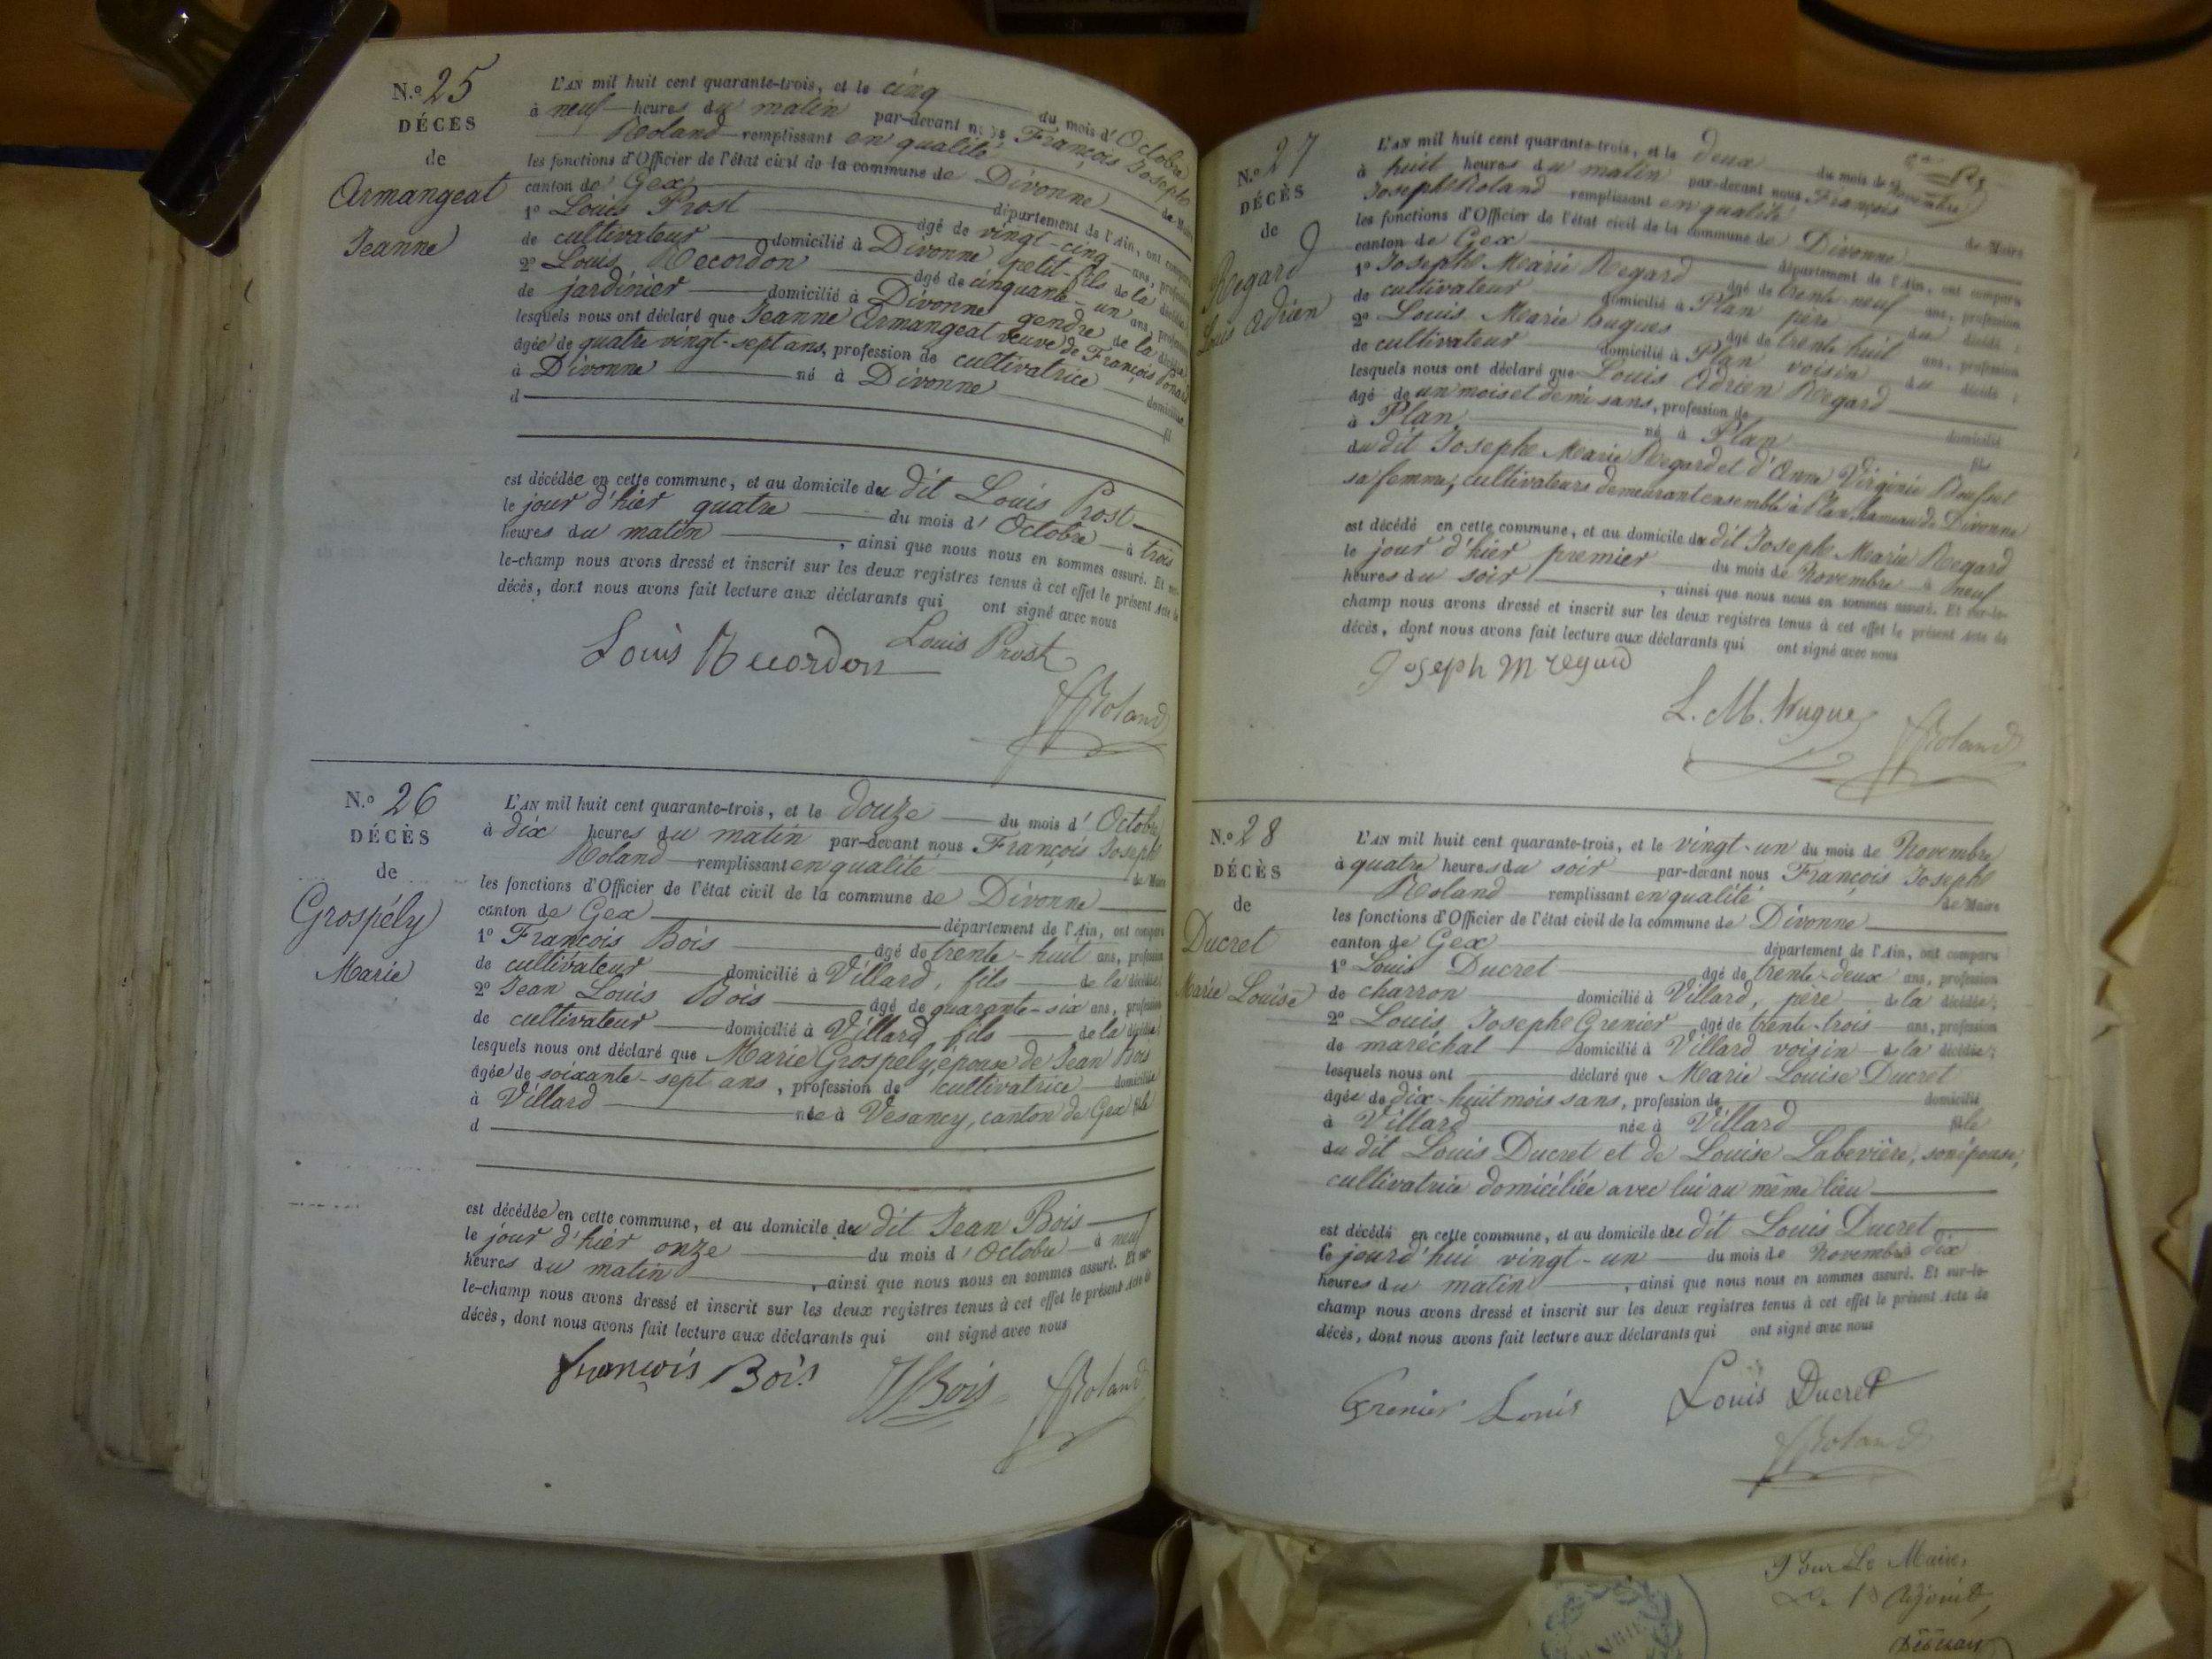 N.º 25
DÉCÈS
de
Armangeat
Jeanne
L'AN mil huit cent quarante-trois, et le cinq du mois d'Octobre
à neuf heures du matin par-devant nous François Joseph
Roland remplissant en qualité de Maire
les fonctions d'Officier de l'état civil de la commune de Divonne
canton de Gex département de l'Ain, ont comparu
1º Louis Prost âgé de vingt-cinq ans, profession
de cultivateur domicilié à Divonne petit-fils de la décédée
2º Louis Recordon âgé de cinquante-un ans, profession
de jardinier domicilié à Divonne gendre de la décédée
lesquels nous ont déclaré que Jeanne Armangeat veuve de François
âgée de quatre vingt-sept ans, profession de cultivatrice domiciliée
à Divonne né à Divonne fil
d
est décédée en cette commune, et au domicile du dit Louis Prost
le jour d'hier quatre du mois d'Octobre à trois
heures du matin, ainsi que nous nous en sommes assuré. Et sur-
le-champ nous avons dressé et inscrit sur les deux registres tenus à cet effet le présent Acte de
décès, dont nous avons fait lecture aux déclarants qui ont signé avec nous
Louis Recordon Louis Prost
Roland
N.º 26
DÉCÈS
de
Grospély
Marie
L'AN mil huit cent quarante-trois, et le douze du mois d'Octobre
à dix heures du matin par-devant nous François Joseph
Roland remplissant en qualité de Maire
les fonctions d'Officier de l'état civil de la commune de Divonne
canton de Gex département de l'Ain, ont comparu
1º François Bois âgé de trente-huit ans, profession
de cultivateur domicilié à Villard, fils de la décédée;
2º Jean Louis Bois âgé de quarante-six ans, profession
de cultivateur domicilié à Villard fils de la décédée;
lesquels nous ont déclaré que Marie Grospely, épouse de Jean Bois
âgée de soixante-sept ans, profession de cultivatrice domiciliée
à Villard née à Vesancy, canton de Gex fille
d
est décédée en cette commune, et au domicile du dit Jean Bois
le jour d'hier onze du mois d'Octobre à neuf
heures du matin, ainsi que nous nous en sommes assuré. Et sur-
le-champ nous avons dressé et inscrit sur les deux registres tenus à cet effet le présent Acte de
décès, dont nous avons fait lecture aux déclarants qui ont signé avec nous
François Bois JLBois Roland
N.º 27
DÉCÈS
de
Regard
Louis Adrien
L'AN mil huit cent quarante-trois, et le deux du mois de Novembre
à huit heures du matin par-devant nous François
Joseph Roland remplissant en qualité de Maire
les fonctions d'Officier de l'état civil de la commune de Divonne
canton de Gex département de l'Ain, ont comparu
1º Josephe Marie Regard âgé de trente-neuf ans, profession
de cultivateur domicilié à Plan père du décédé;
2º Louis Marie hugues âgé de trente huit ans, profession
de cultivateur domicilié à Plan voisin du décédé;
lesquels nous ont déclaré que Louis Adrien Regard
âgé de un mois et demi sans, profession de domicilié
à Plan né à Plan fils
du dit Josephe Marie Regard et d'Anne Virginie
sa femme, cultivateurs demeurant ensemble à Plan, hameau de Divonne
est décédé en cette commune, et au domicile du dit Josephe Marie Regard
le jour d'hier premier du mois de Novembre à neuf
heures du soir, ainsi que nous nous en sommes assuré. Et sur-le-
champ nous avons dressé et inscrit sur les deux registres tenus à cet effet le présent Acte de
décès, dont nous avons fait lecture aux déclarants qui ont signé avec nous
Joseph M regard
L. M. hugues Roland
N.º 28
DÉCÈS
de
Ducret
Marie Louise
L'AN mil huit cent quarante-trois, et le vingt-un du mois de Novembre
à quatre heures du soir par-devant nous François Josephe
Roland remplissant en qualité de Maire
les fonctions d'Officier de l'état civil de la commune de Divonne
canton de Gex département de l'Ain, ont comparu
1º Louis Ducret âgé de trente-deux ans, profession
de charron domicilié à Villard, père de la décédée;
2º Louis Josephe Grenier âgé de trente-trois ans, profession
de maréchal domicilié à Villard voisin de la décédée;
lesquels nous ont déclaré que Marie Louise Ducret
âgée de dix-huit mois sans, profession de domicilié
à Villard née à Villard fille
du dit Louis Ducret et de Louise Labevière, son épouse,
cultivatrice domiciliée avec lui au même lieu
est décédé en cette commune, et au domicile du dit Louis Ducret
Ce jourd'hui vingt-un du mois de Novembre dix
heures du matin, ainsi que nous nous en sommes assuré. Et sur-le-
champ nous avons dressé et inscrit sur les deux registres tenus à cet effet le présent Acte de
décès, dont nous avons fait lecture aux déclarants qui ont signé avec nous
Grenier Louis Louis Ducret
Roland
Pour Le Maire,